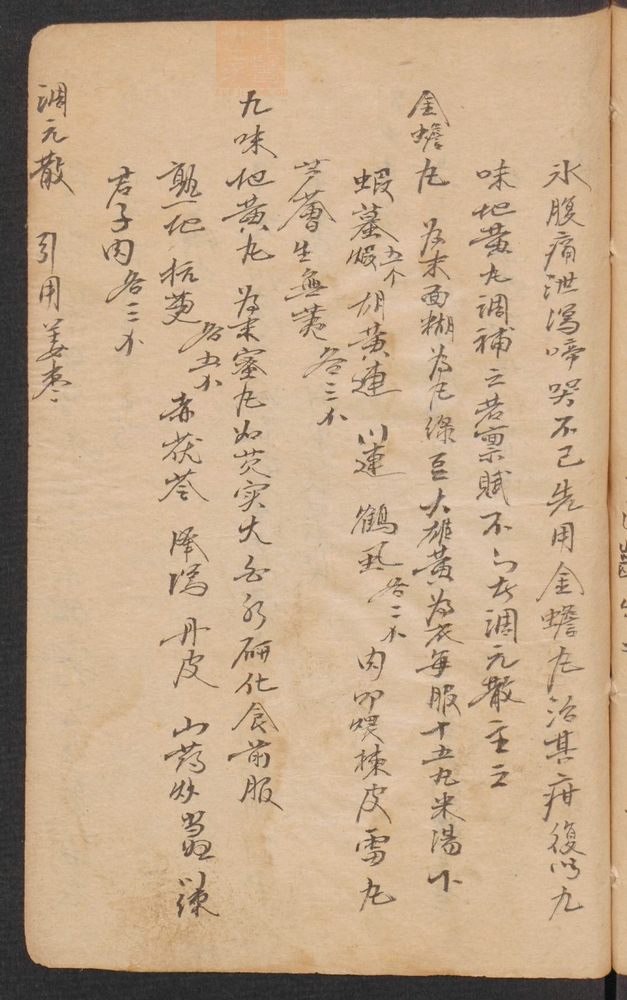 水腹痛泄瀉啼哭不已先用金蟾丸治其疳復以九
味地黃丸調補之若禀賦不 者調元散主之
金蟾丸 為末面糊為丸綠豆大雄黃為衣每服十五丸米湯下
蝦蟇煨五个 胡黃連 川連 鶴虱各二个 肉叩煨楝皮雷丸
芦薈生無荑各三个
九味地黃丸 為末蜜丸如芡实大白水研化食前服
熟地 杭萸各五个 赤茯苓 降瀉 丹皮 山药炒當歸川楝
君子肉各三个
調元散 引用姜枣